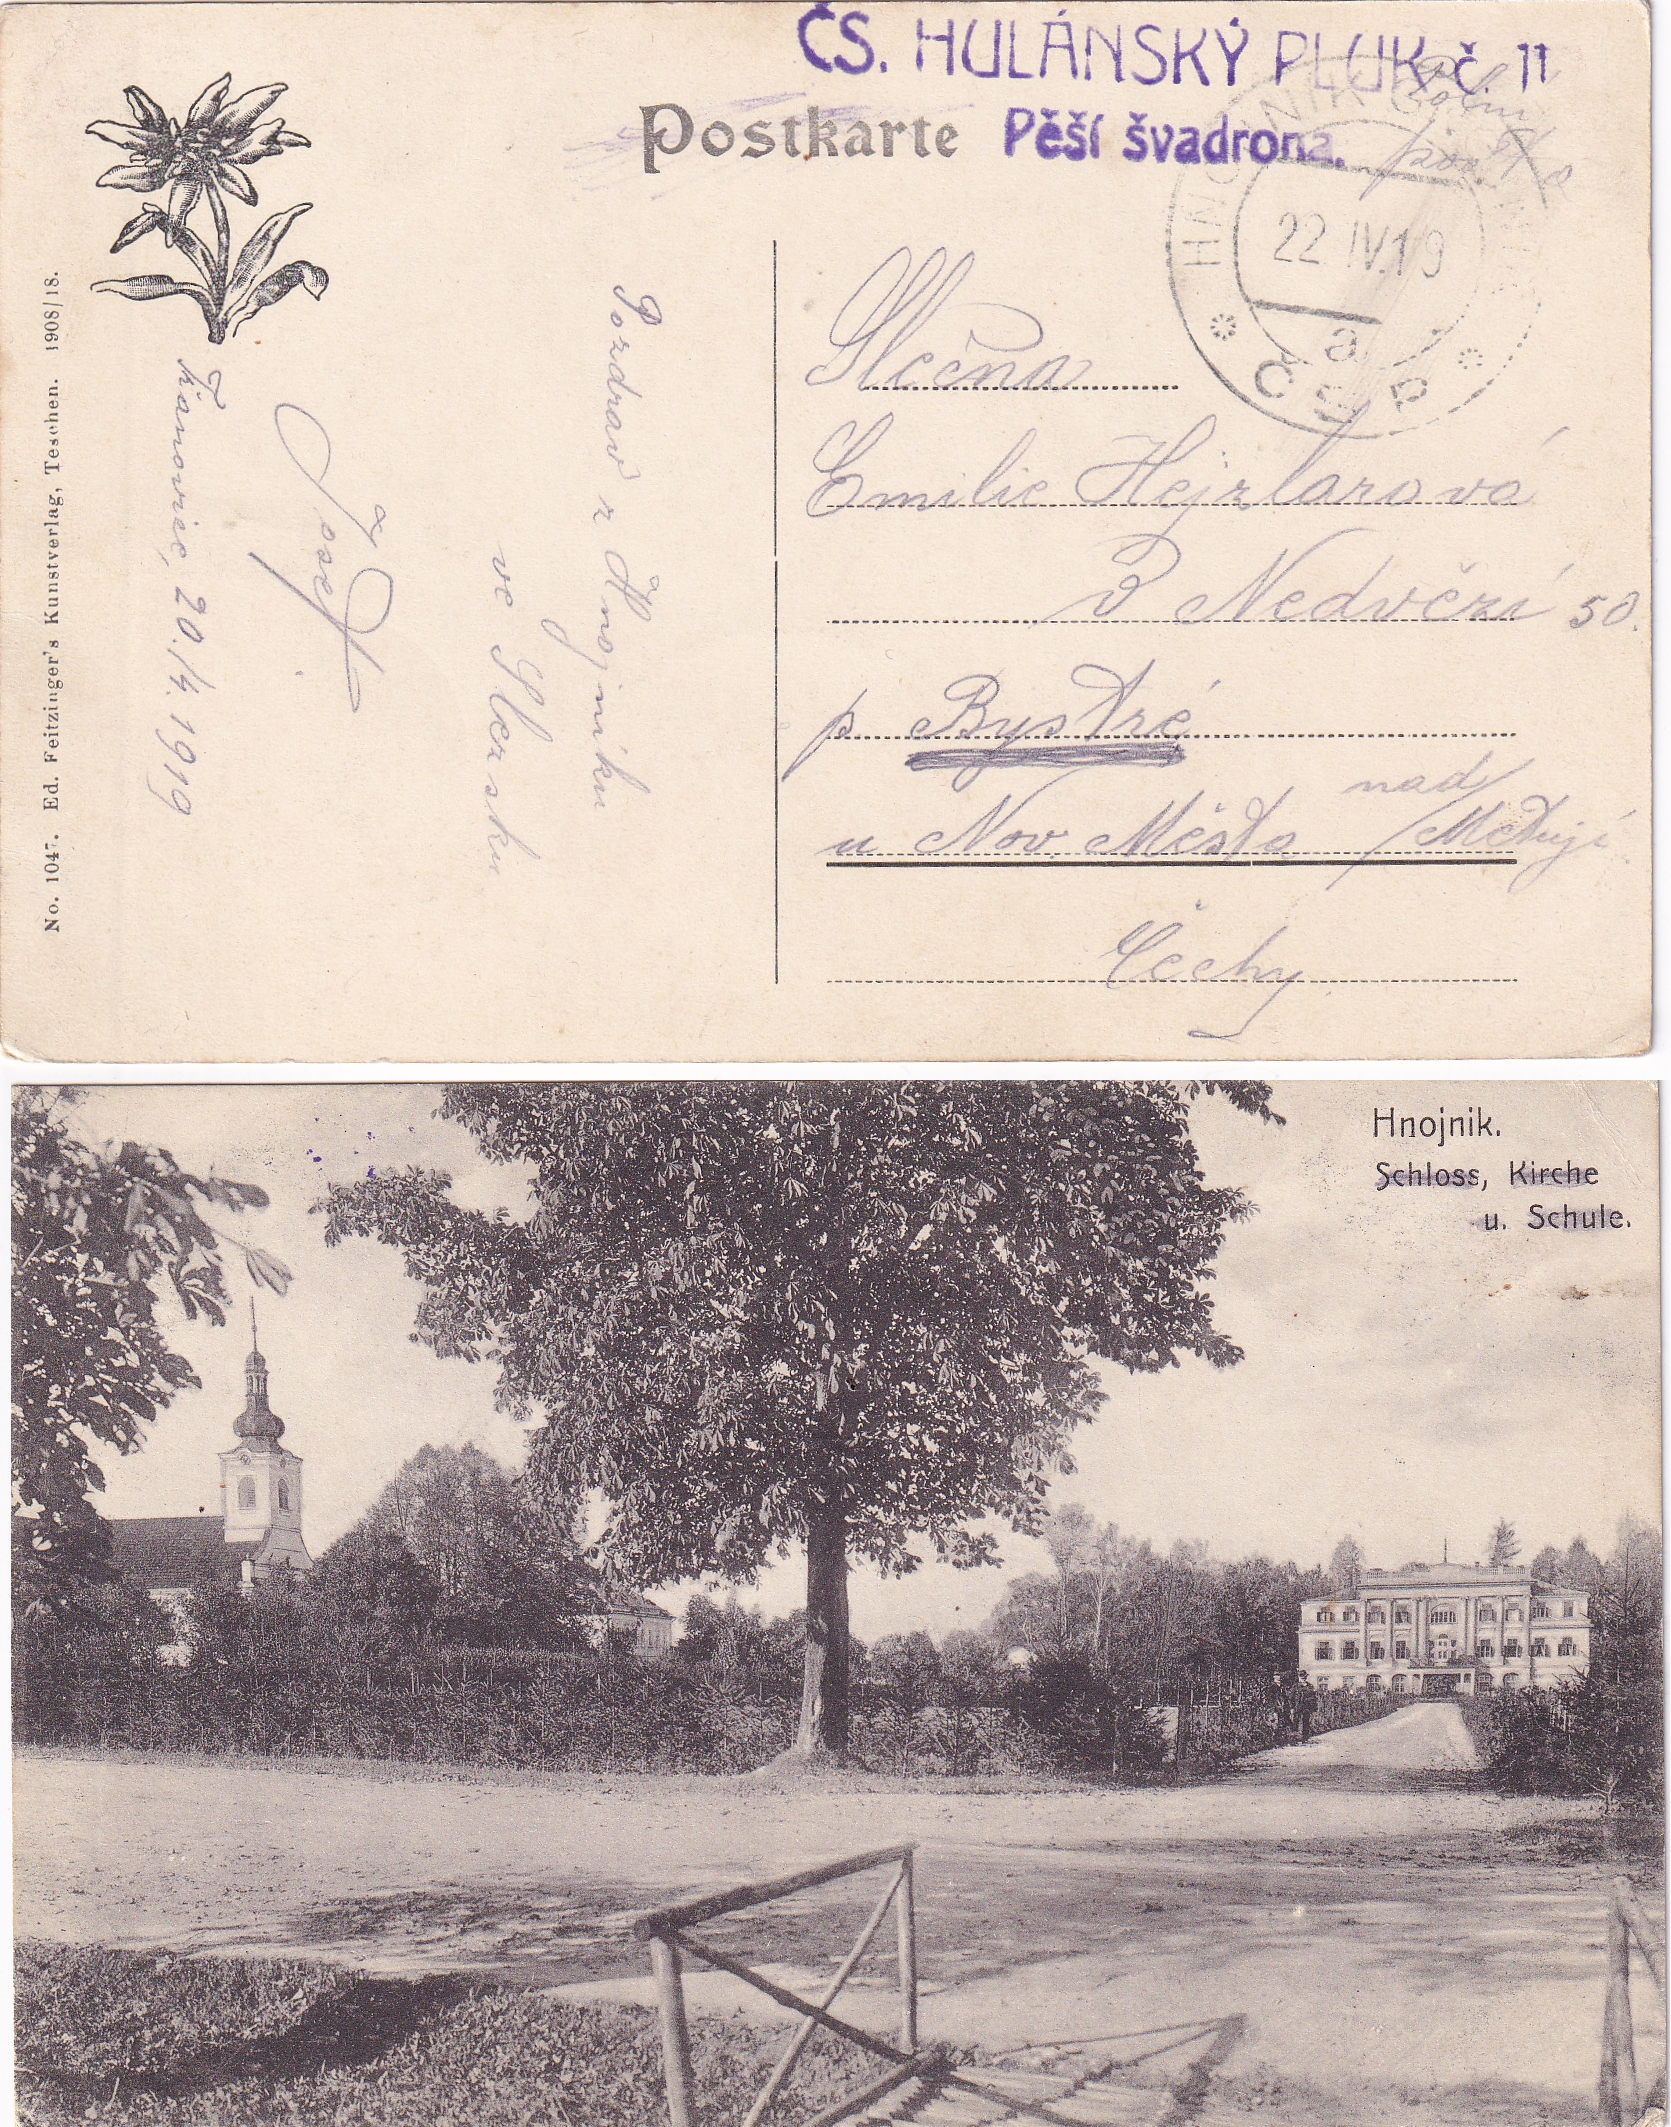 ČS. HULÁNSKÝ PLUK č. 11
Pěší švadrona.
Postkarte
Polní
HNOJNÍK
22 IV. 19
a
Slečna
Emilie Hejzlarova
v Nedvězí 50.
p Bystré
u Nov. Města nad/Metují
Čechy
Pozdrav z Hnojníku
ve Slezsku
Josef
Tranovice, 20./4. 1919
No. 1047. Ed. Feitzinger's Kunstverlag, Teschen. 1908/18.
Hnojnik.
Schloss, Kirche
u. Schule.